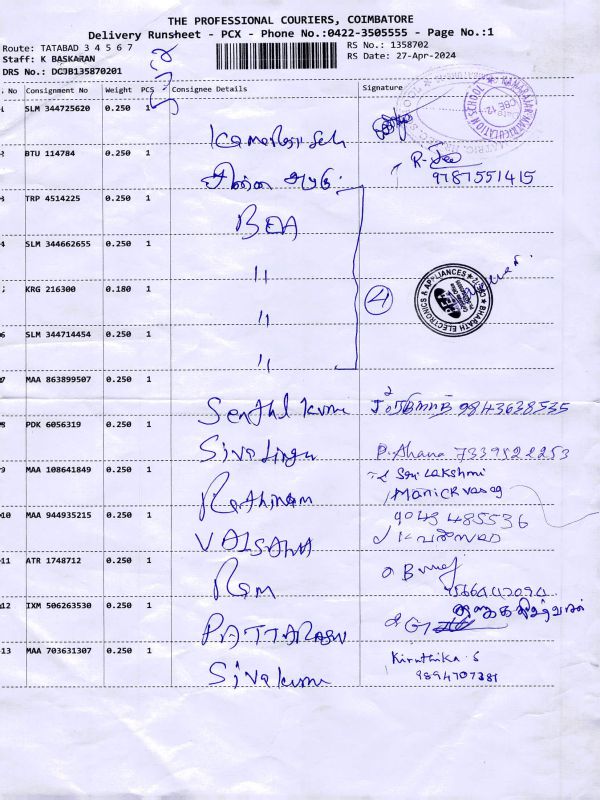 THE PROFESSIONAL COURIERS, COIMBATORE
Delivery Runsheet - PCX - Phone No.:0422-3505555 - Page No.:1
Route: TATABAD 3 4 5 6 7
RS No.: 1358702
Staff: K BASKARAN
RS Date: 27-Apr-2024
DRS No.: DCJB135870201
. No Consignment No Weight PCS Consignee Details Signature
SLM 344725620 0.250 1
BTU 114784 0.250 1
R-
9787551415
3 TRP 4514225 0.250 1
BEA
4 SLM 344662655 0.250 1
"
KRG 216300 0.180 1
"
4
BHARATH ELECTRONICS & APPLIANCES
6 SLM 344714454 0.250 1
"
7 MAA 863899507 0.250 1
Senthil Kumar 9843638535
8 PDK 6056319 0.250 1
Sivalingam P. Ahana 7339522253
9 MAA 108641849 0.250 1
Rathinam Sri Lakshmi
Manickvasag
10 MAA 944935215 0.250 1
9043485536
VALSALA
11 ATR 1748712 0.250 1
Ram
12 IXM 506263530 0.250 1
PATTARASU
13 MAA 703631307 0.250 1
Kiruthika S
Sivakumar 9894707381